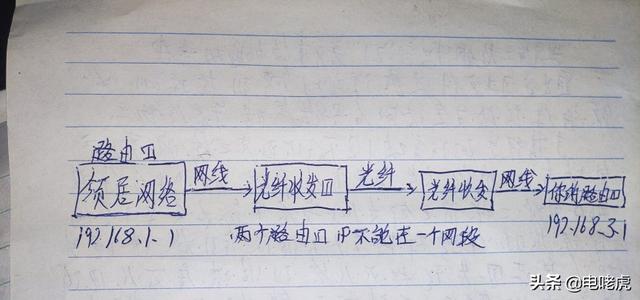 路由口
领居网络 网线 光纤收发口 光纤 光纤收发 网线 你的路由口
192.168.1.1 两个路由口IP不能在一个网段 192.168.3.1
头条 @电咾虎